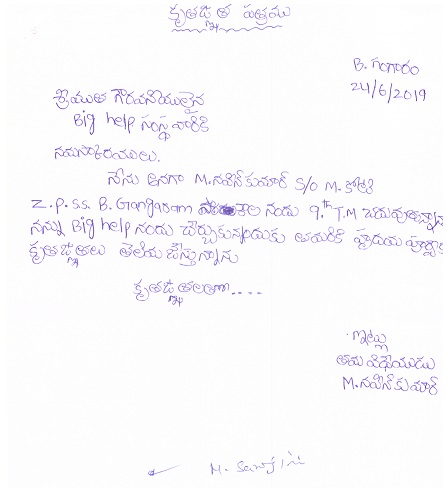 కృతజ్ఞత పత్రము
B. గంగారం
24/6/2019
శ్రీయుత గౌరవనీయులైన
Big help సంస్థ వారికి
నమస్కారములు.
నేను అనగా M.నవీన్ కుమార్ S/o M.
Z.P.SS. B. Gangaram నందు 9.th T.M చదువుతున్నాను
నన్ను Big help నందు చేర్చుకున్నందుకు తమరికి హృదయ పూర్వక
కృతజ్ఞతలు తెలియజేస్తున్నాను
కృతజ్ఞతలతో....
ఇట్లు
తమ విధేయుడు
M.నవీన్ కుమార్
M.